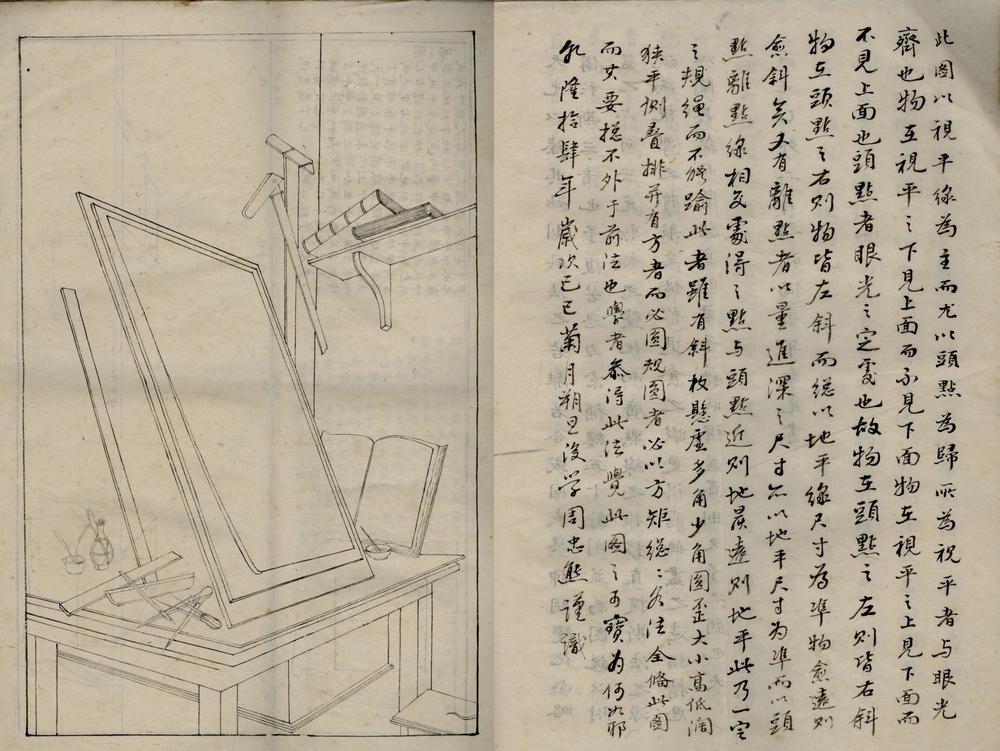 此圖以視平線為主而尤以頭點為歸所為視平者与眼光
齊也物在視平之下見上面而不見下面物在視平之上見下面而
不見上面也頭點者眼光之定處也故物在頭點之左則皆右斜
物在頭點之右則物皆左斜而總以地平線尺寸為準物愈遠則
愈斜矣又有離點者以量進深之尺寸亦以地平尺寸為準而以頭
點離點線相交處得之點与頭點近則地長遠則地平此乃一定
之規繩而不能踰此者雖有斜枚懸虛多角少角圓歪大小高低濶
狹平側疊排并有方者而必圓規圓者必以方矩總之各法全俻此圖
而其要總不外于前法也學者叅得此法覺此圖之可寶為何如耶
乾隆拾肆年歲次己巳菊月朔旦後学周忠熊謹識